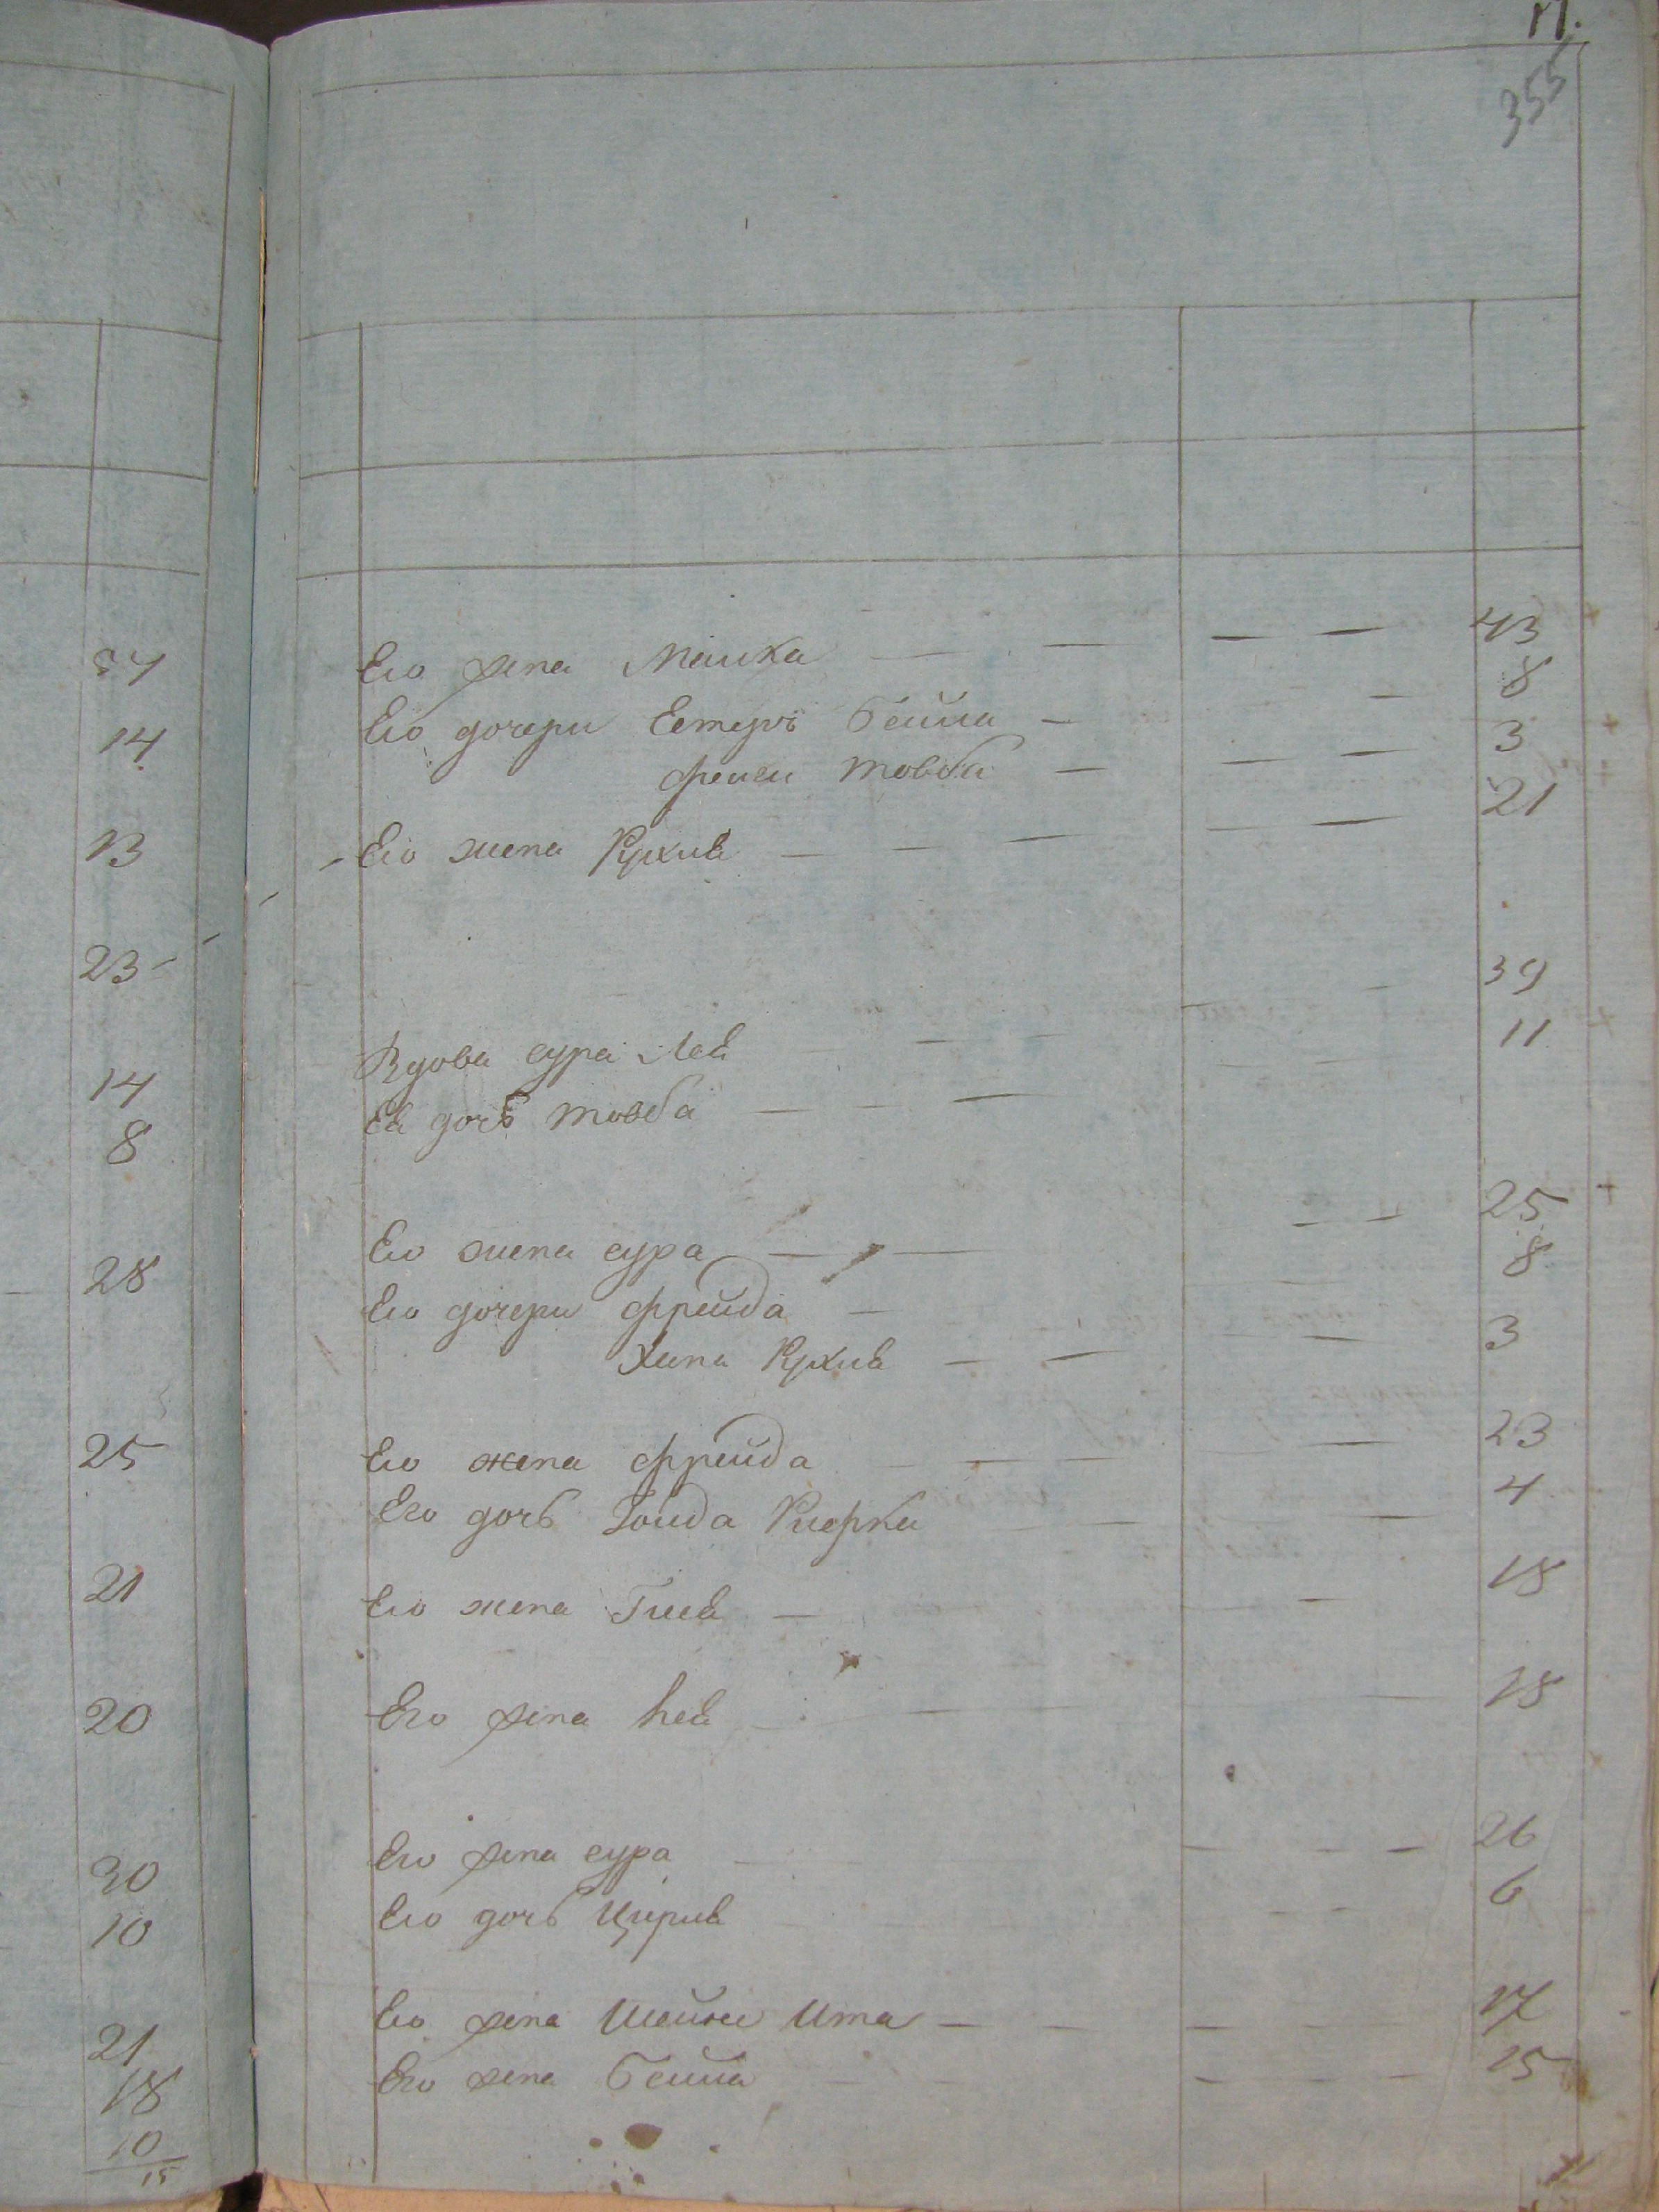 11.
355
34
14
13
23
14
8
28
25
21
20
30
10
21
18
10
15
Его жена Машка 43
Его дочери Естеръ Бейла 8
Фейга Товба 3
Его жена Рухля 21
Вдова Сура Лея 39
Ея дочь Товба 11
Его жена Сура 25
Его дочери Фрейда 8
Хана Рухля 3
Его жена Фрейда 23
Его дочь Рифка 4
Его жена 18
Его жена Лея 18
Его жена Сура 26
Его дочь Цирля 6
Его жена Шейна Ита 17
Его жена Бейла 15